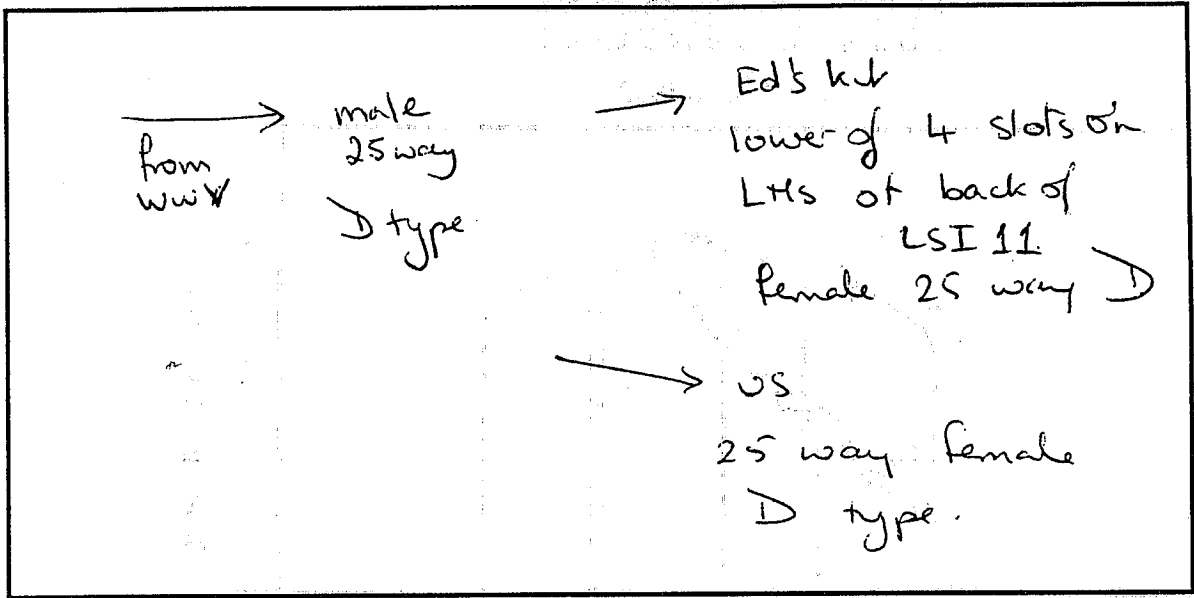 from
WWV
male
25 way
D type
Ed's kit
lower of 4 slots on
LHS of back of
LSI 11
female 25 way D
US
25 way female
D type.